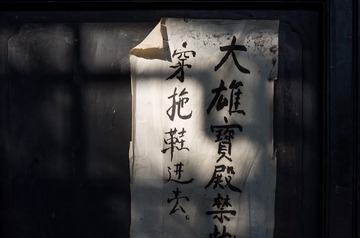 大雄寶殿禁
穿拖鞋进去。